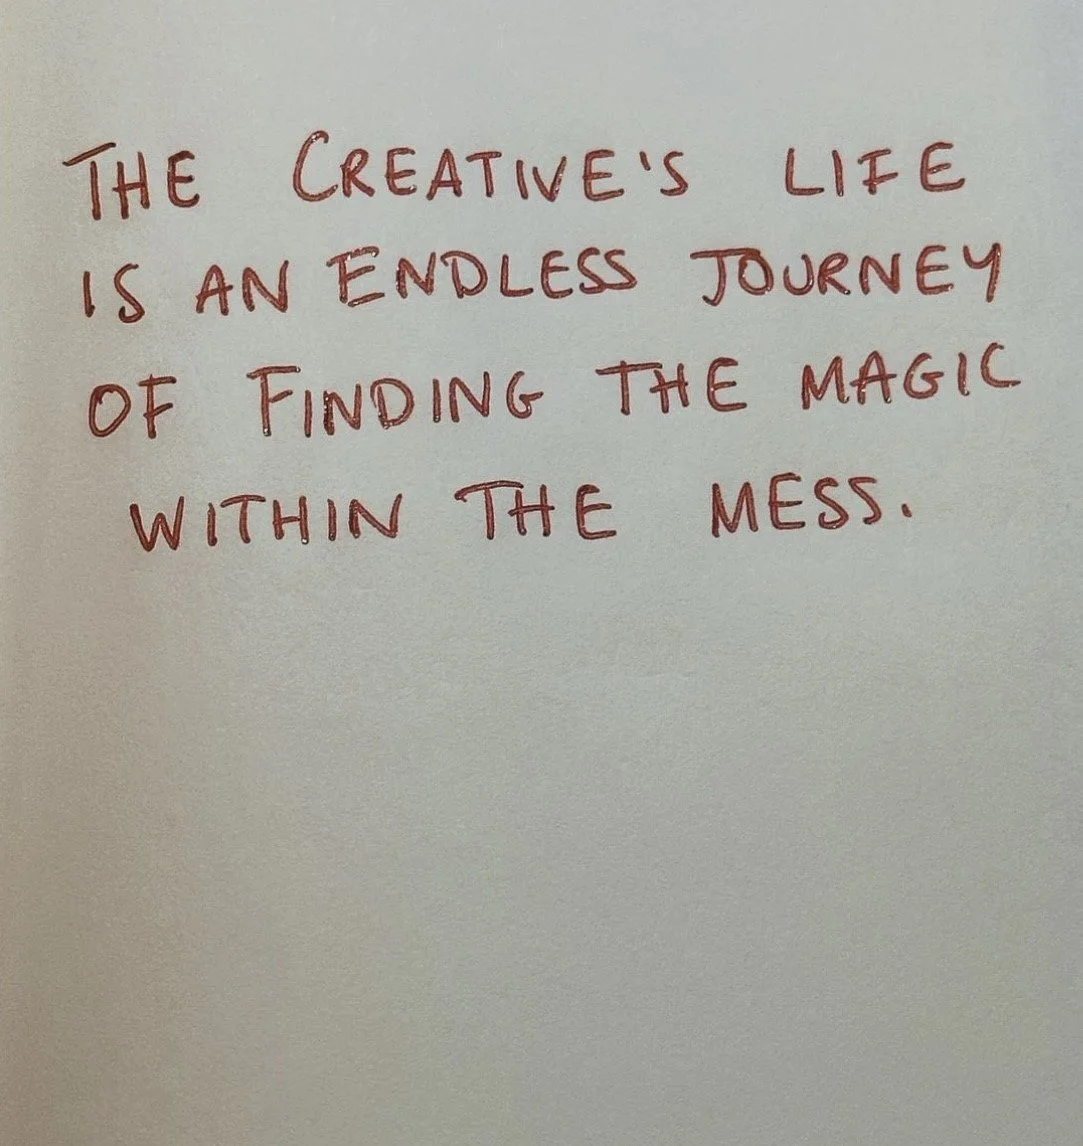 THE CREATIVE'S LIFE
IS AN ENDLESS JOURNEY
OF FINDING THE MAGIC
WITHIN THE MESS.